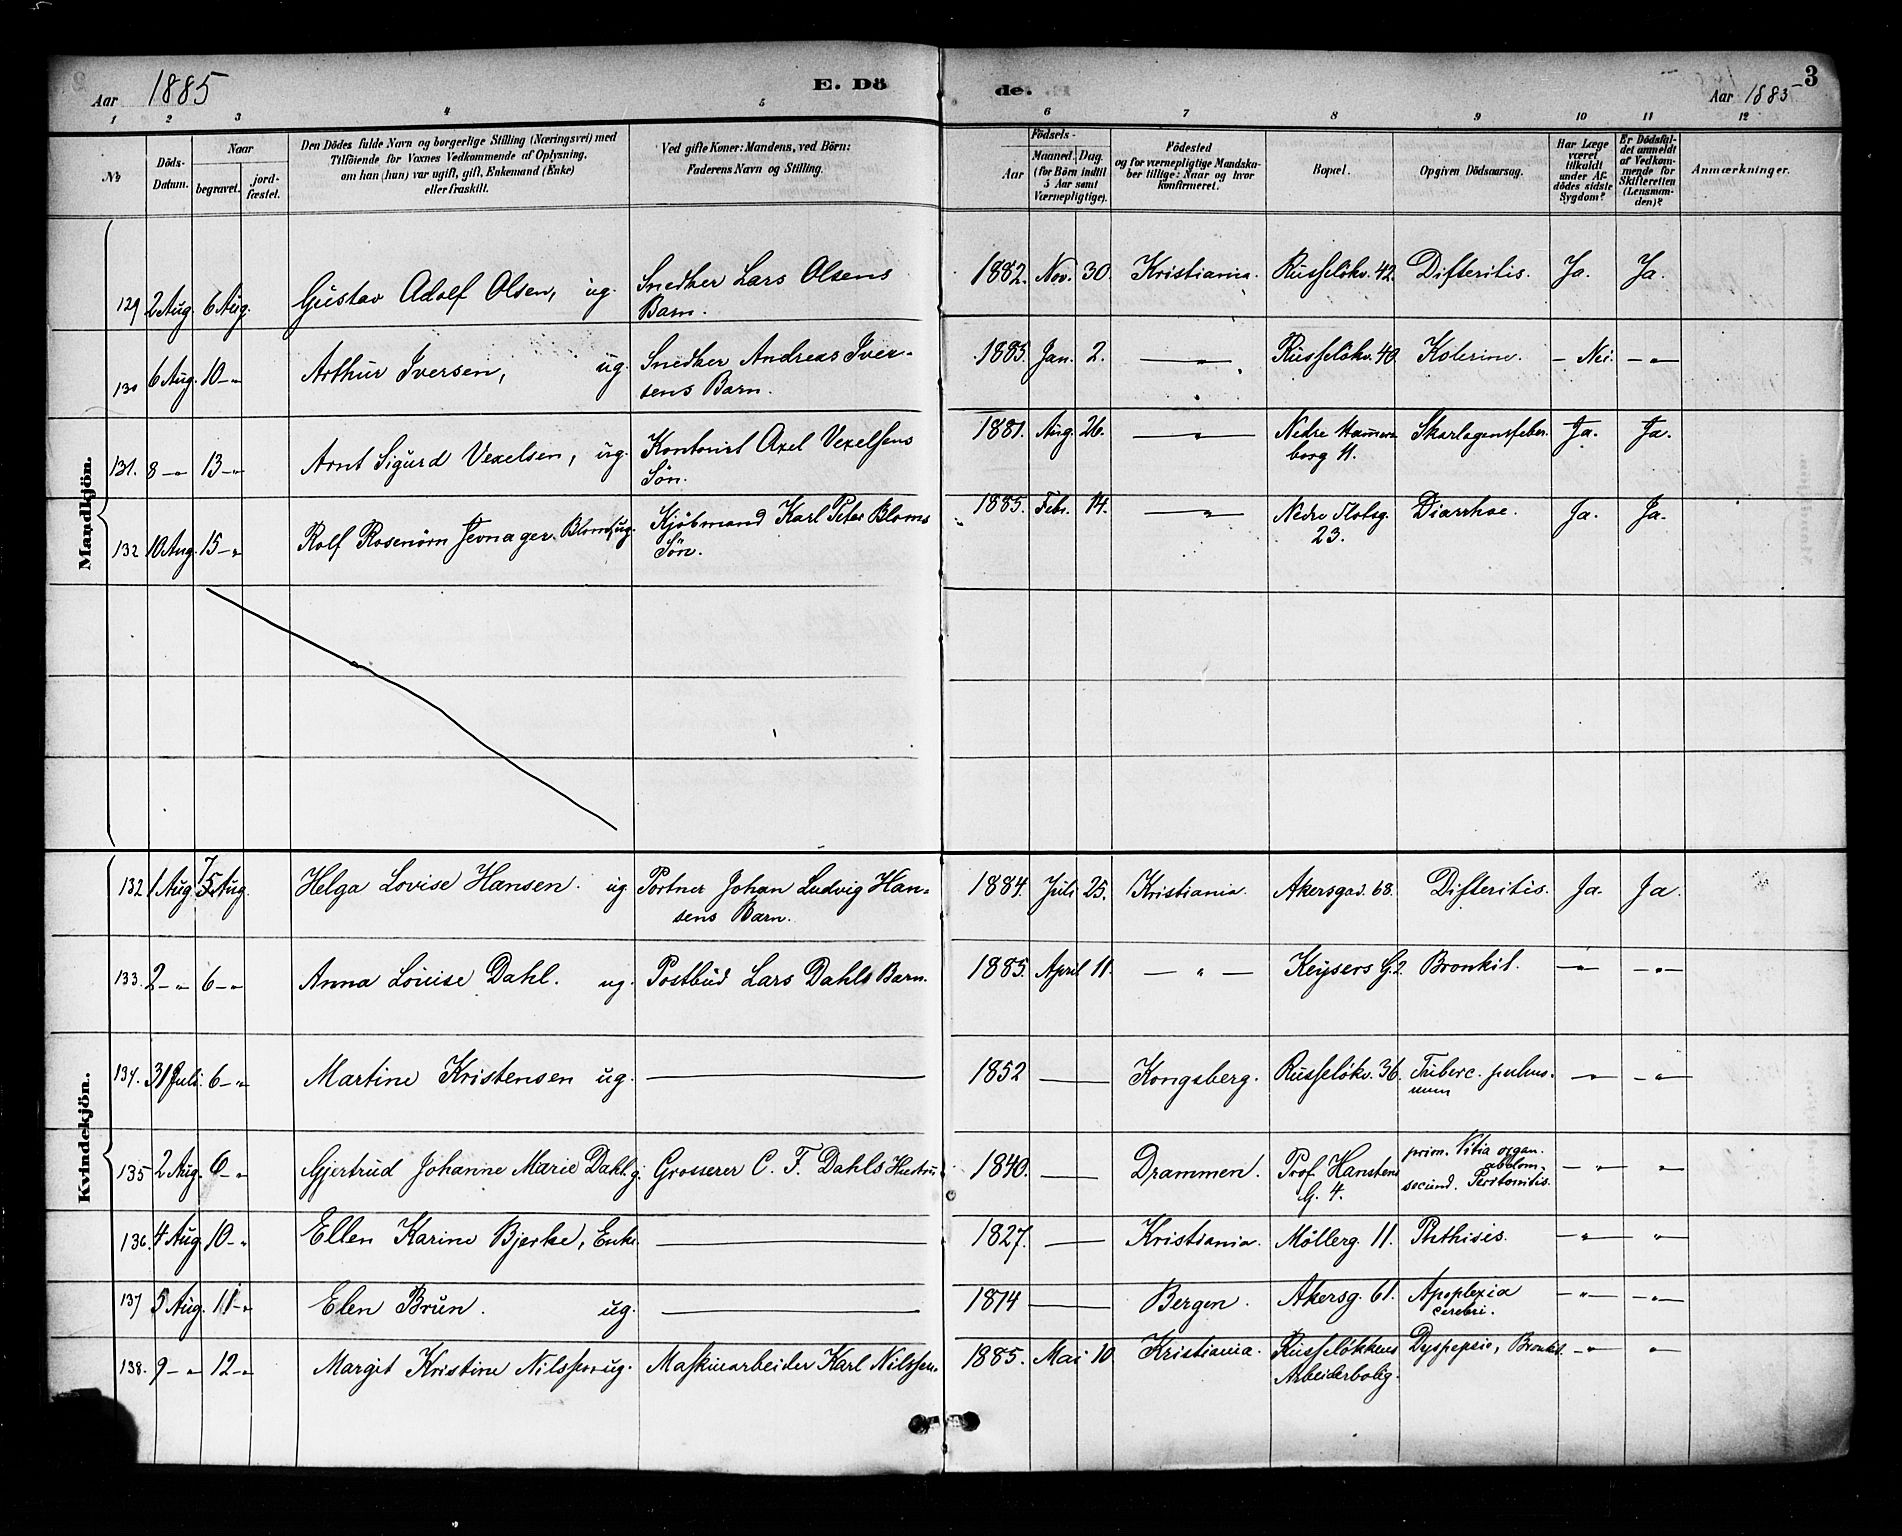 Aar 1885 E. Döde. Aar 1885 3
1 2 3 4 5 6 7 8 9 10 11 12
No
Döds-Datum.
Naar
begravet.
jord-fæstet.
Den Dödes fulde Navn og borgerlige Stilling (Næringsvei) med
Tilföiende for Voxnes Vedkommende af Oplysning,
om han (hun) var ugift, gift, Enkemand (Enke)
eller fraskilt.
Ved gifte Koner: Mandens, ved Börn:
Faderens Navn og Stilling.
Födsels-
Aar
Maaned. Dag.
(for Börn indtil
5 Aar samt
Værnepligtige).
Födested
og for værnepligtige Mandska-
ber tillige: Naar og hvor
konfirmeret.
Bopæl.
Opgiven Dödsaarsag.
Har Læge
været
tilkaldt
under Af-
dödes sidste
Sygdom?
Er Dödsfal-
det anmeldt
af Vedkom-
mende for
Skifteretten
(Lensman-
den)?
Anmærkninger.
Mandkjön.
129 2 Aug. 6 Aug. Gustav Adolf Olsen, ug. Snedker Lars Olsens
Barn. 1882. Nov. 30. Kristiania. Russeløkv. 42. Difteritis. Ja. Ja.
130 6 Aug. 10 -„- Arthur Iversen, ug. Snedker Andreas Iver-
sens Barn. 1885. Jan. 2. —„— Russeløkv. 40. Kolerine. - Nei. -„-
131. 8 -„- 13 -„- Arnt Sigurd Vexelsen, ug. Kontorist Axel Vexelsens
Søn. 1881. Aug. 26. —„— Nedre Hammers
borg 11. Skarlagensfeber. Ja. Ja.
132 10 Aug. 15 -„- Rolf Rosenørn Jevnager Blom, ug. Kjøbmand Karl Peter Bloms
Søn. 1885. Feb. 14. —„— Nedre Slotsg.
23. Diarrhoe. Ja. Ja.
Kvindekjön.
132 1 Aug. 7 5 Aug. Helga Lovise Hansen. ug. Portner Johan Ludvig Han-
sens Barn. 1884. Juli 25. Kristiania. Akersgad. 68. Difteritis. Ja. Ja.
133. 2 -„- 6 -„- Anna Louise Dahl. ug. Postbud Lars Dahls Barn. 1885. April 11. —„— Keysers G. 2. Bronkit. -„- -„-
134. 31 Juli. 6 -„- Martine Kristensen ug. — 1852 — Kongsberg. Russeløkv. 36. Tuberc. pulmo-
num -„- -„-
135 2 Aug. 6 -„- Gjertrud Johanne Marie Dahl g. Grosserer C. F. Dahls Hustru 1840. — Drammen. Prof. Hanstens
G. 4. prim. Vitia organ.
abdom.
secund. Peritonitis. -„- „
136. 4 Aug. 10 -„- Ellen Karine Bjerke, Enke. — 1827. — Kristiania. Møllerg. 11. Phthisis. -„- „
137 5 Aug. 11 -„- Elen Brun. ug. — 1814 — Bergen. Akersg. 61. Apoplexia
cerebri. -„- -„-
138. 9 -„- 12 -„- Margit Kristine Nilssen ug. Maskinarbeider Karl Nilssen. 1885. Mai 10. Kristiania. Russeløkkens
Arbeiderbolig. Dyspepsie, Bronkit. -„- „